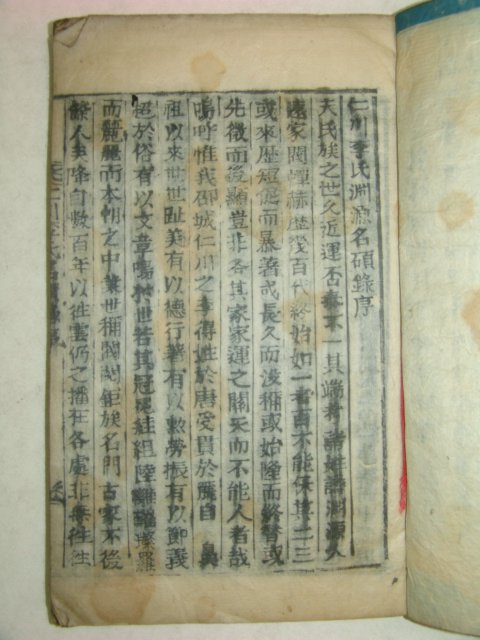 仁川李氏淵源名碩錄序
夫氏族之世久近運否泰不一其端考諸姓譜淵源久
遠家閥燀赫歷後百代終始如一者百不能保其二三
或來歷短促而暴著或長久而没稱或始隆而終替或
先微而後顯豈非各其家家運之關天而不能人者哉
嗚呼惟我邵城仁川之李得姓於唐受貫於麗自 吳
祖以來世世趾美有以德行著有以勲勞振有以節義
拯於俗有以文章鳴於世若其冠冕紱組陸離璀璨羅
而麗麗而本朝之中葉世稱閥閱鉅族名門古家不後
於人矣降自數百年以徃雲仍之播在各處非無徃徃